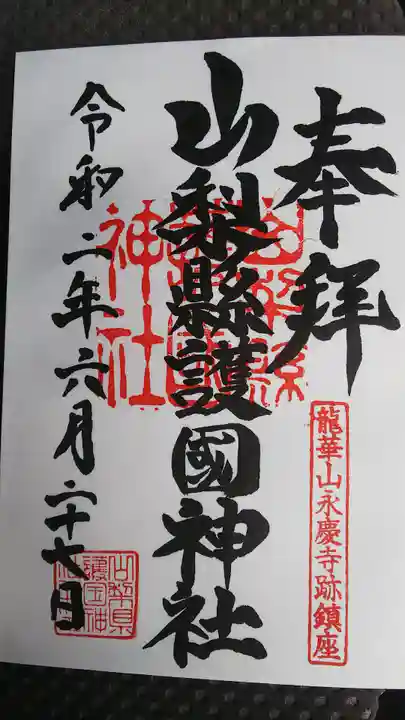 奉拝
龍華山永慶寺跡鎮座
山梨縣護國神社
山梨縣護國神社
令和二年六月二十七日
山梨県護国神社